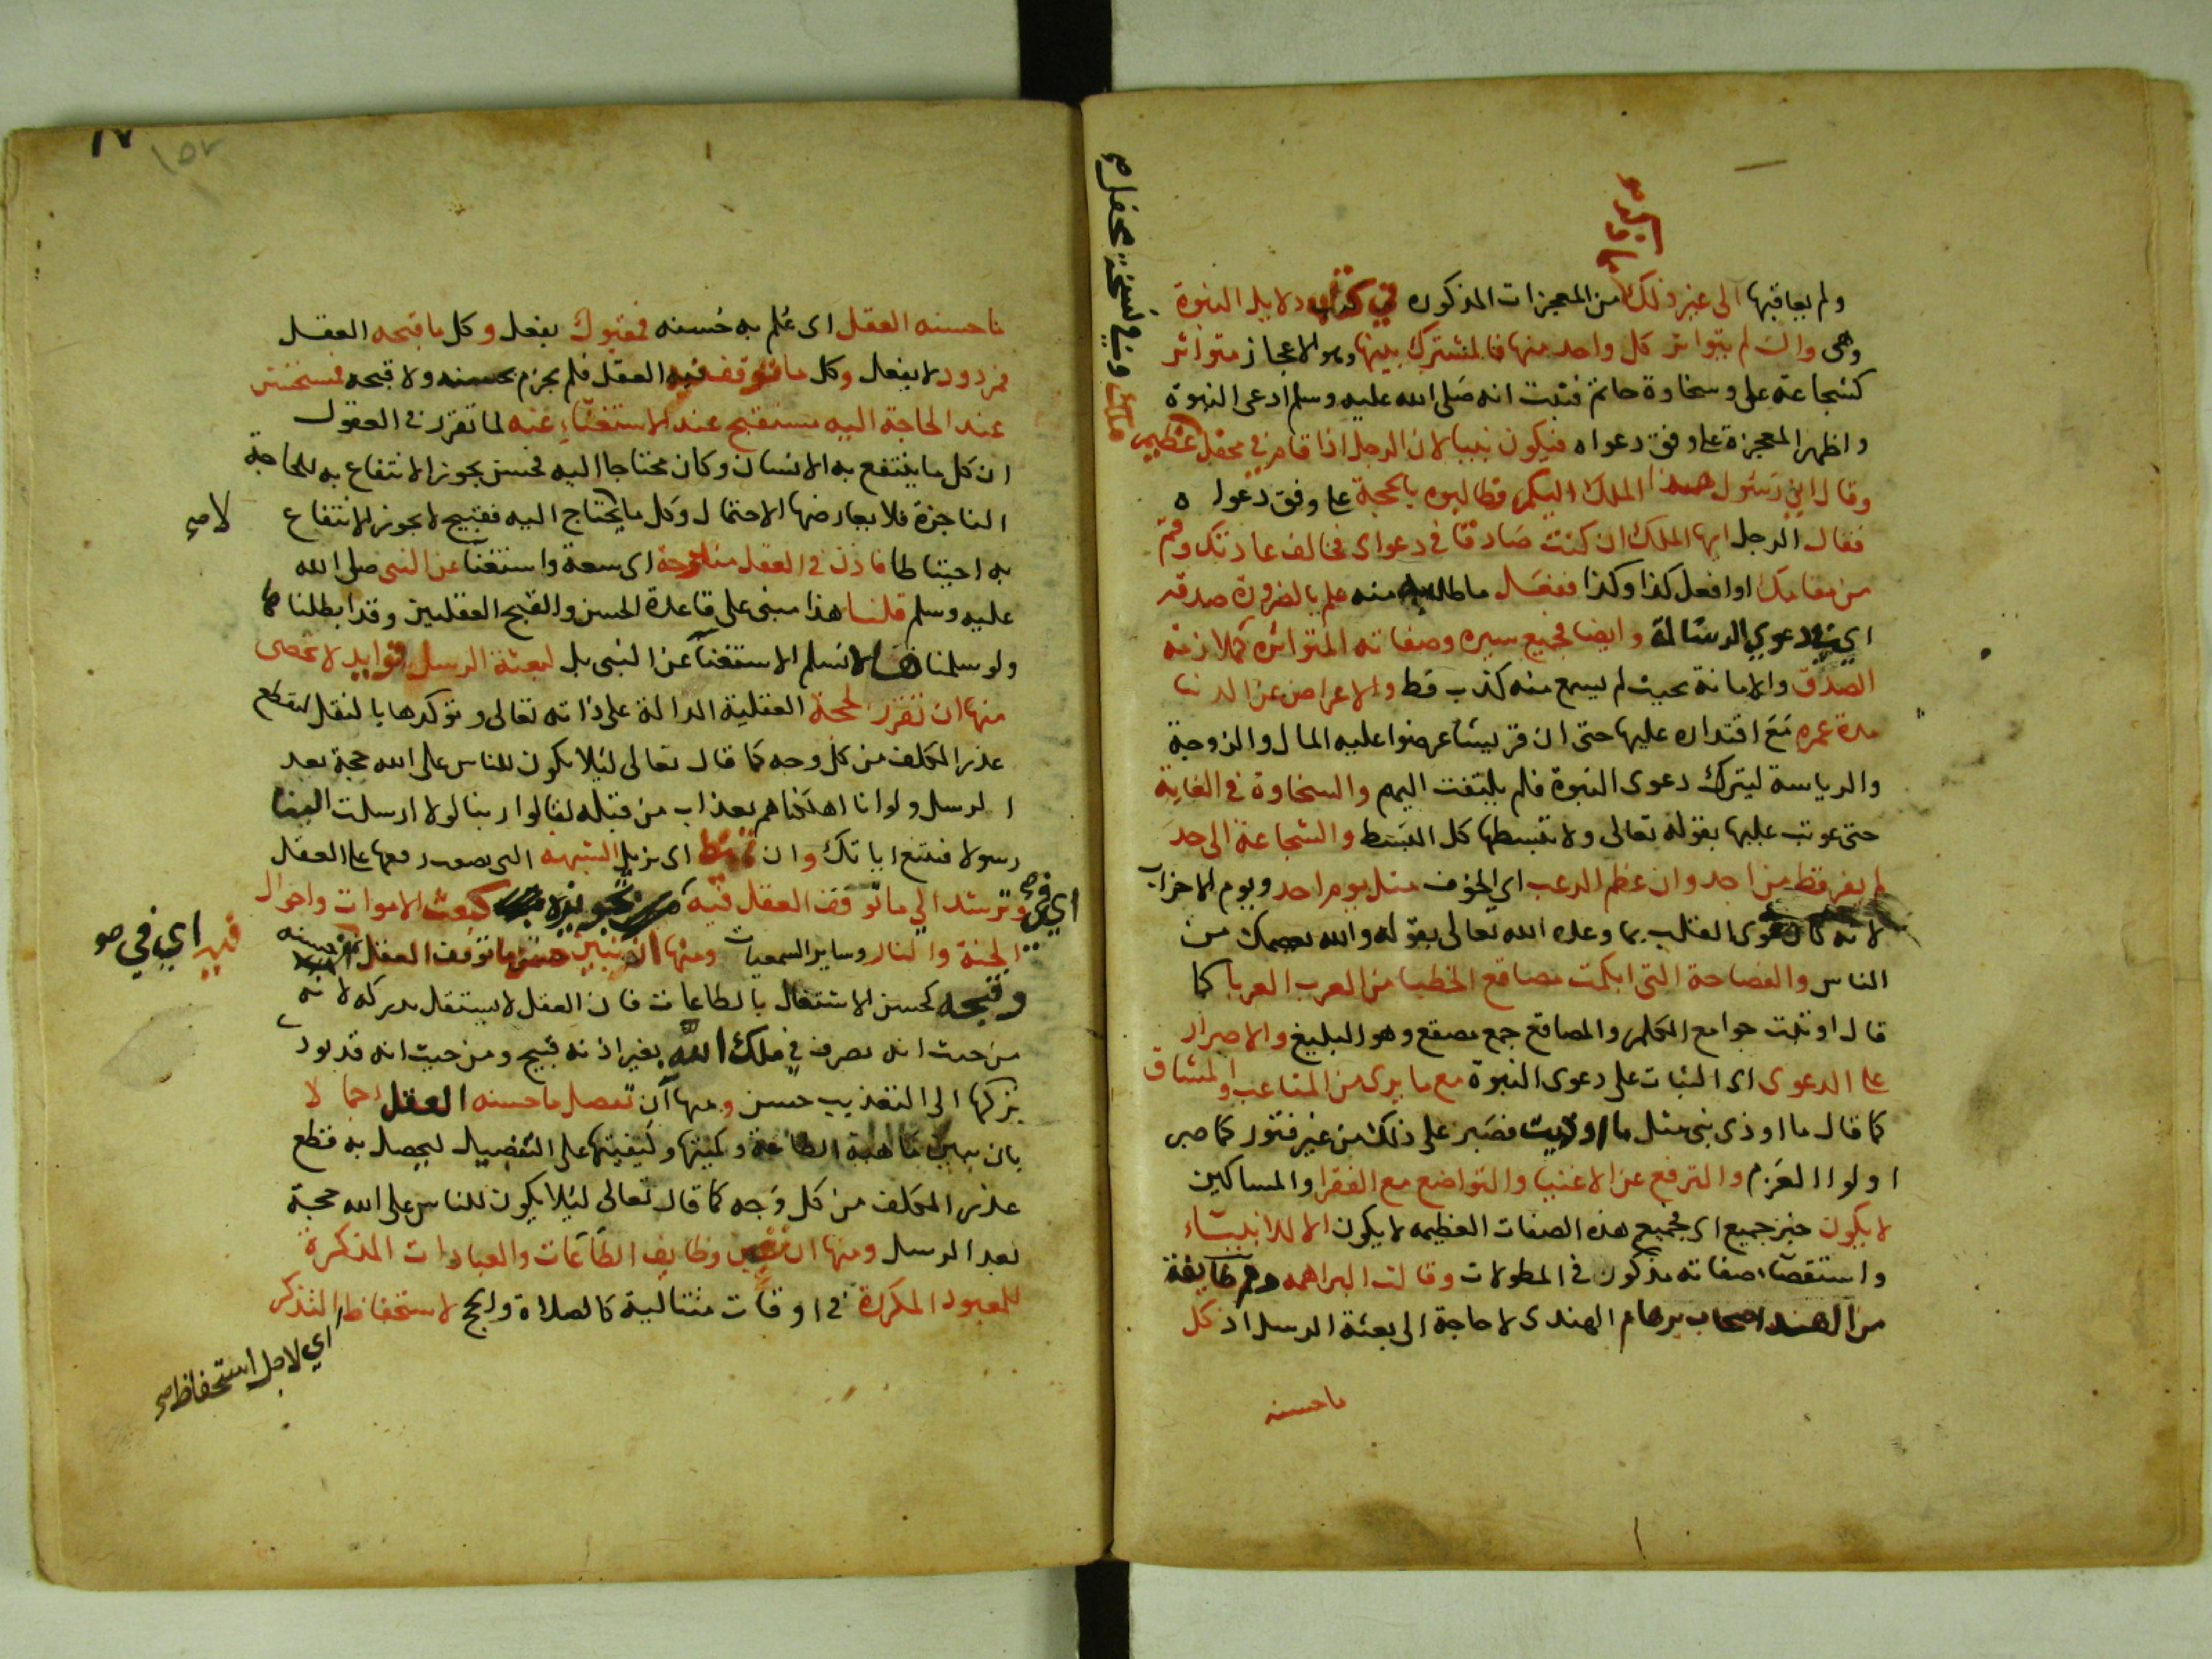 ولم يعاقبها الى غير ذلك من المعجزات المذكوره في كتاب دلايل النبوة
وهى وان لم يتواتر كل واحد منها فالمشترك بينها وهو الاعجاز متواتر
كشجاعة على وسخاوة حاتم فثبت انه صلى الله عليه وسلم ادعى النبوة
واظهر المعجزة على وفق دعواه فيكون نبيا لان الرجل اذا قام في محفل عظيم
وفي نسخة محفل ملك
وقال اني رسول هذا الملك اليكم فطالبوه بالحجة على وفق دعواه
فقال الرجل ايها الملك ان كنت صادقا في دعواى فخالف عادتك وقم
من مقامك او افعل كذا وكذا ففعل ما طالبه منه علم بالضرورة صدقه
اي في دعوي الرسالة وايضا فجميع سيره وصفاته المتواتره كملازمته
الصدق والامانة بحيث لم يسمع منه كذب قط والاعراض عن الدنيا
مدة عمره مع اقتداره عليها حتى ان قريشا عرضوا عليه المال والزوجة
والرياسة ليترك دعوى النبوة فلم يلتفت اليهم والسخاوة في الغاية
حتى عوتب عليها بقوله تعالى ولا تبسطها كل البسط والشجاعة الى حد
لم يفر قط من احد وان عظم الرعب اي الخوف مثل يوم احد ويوم الاحزاب
لانه كان قوى القلب بما وعده الله تعالى بقوله والله يعصمك من
الناس والفصاحة التى ابكمت مصاقع الخطبا من العرب العربا كما
قال اوتيت جوامع الكلم والمصاقع جمع مصقع وهو البليغ والاصرار
على الدعوى اى الثبات على دعوى النبوة مع ما يرى من المتاعب والمشاق
كما قال ما اوذى نبى مثل ما اوذيت فصبر على ذلك من غير فتور كما صبر
اولوا العزم والترفع عن الاغنيا والتواضع مع الفقرا والمساكين
لا يكون خبر جميع اى فجميع هذه الصفات العظيمه لا يكون الا للانبياء
واستقصاء صفاته مذكور في المطولات وقالت البراهمه وهم طايفة
من الهند اصحاب برهام الهندى لا حاجة الى بعثة الرسل اذ كل
ما حسنه
١٧
١٥٢
ما حسنه العقل اى علم به حسنه فمقبول يفعل وكل ما قبحه العقل
فمردود لا يفعل وكل ما توقف فيه العقل فلم يجزم بحسنه ولا قبحه فمستحسن
عند الحاجة اليه مستقبح عند الاستغناء عنه لما تقرر في العقول
ان كل ما ينتفع به الانسان وكان محتاجا اليه فحسن يجوز الانتفاع به للحاجة
الناجزة فلا يعارضها الاحتمال وكل ما يحتاج اليه فقبيح لا يجوز الانتفاع
لا صح
به احتياطا فاذن في العقل مندوحة اى سعة واستغنا عن النبى صلى الله
عليه وسلم قلنا هذا مبنى على قاعدة الحسن والقبح العقليين وقد ابطلناها
ولو سلمنا لا نسلم الاستغنا عن النبى بل لبعثة الرسل فوايد لا تحصى
منها ان تقرر الحجة العقلية الدالة على ذاته تعالى وتوكدها بالنقل ليقطع
عذر المكلف من كل وجه كما قال تعالى ليلا يكون للناس على الله حجة بعد
الرسل ولو انا اهلكناهم بعذاب من قبله لقالوا ربنا لولا ارسلت الينا
رسولا فنتبع اياتك وان تميط اى يزيل الشبهه التى يصعب دفعها على العقل
وترشد الي ما توقف العقل فيه كبعث الاموات واحوال
فيه اي في صح
الجنة والنار وساير السمعيات ومنها ان يبين حسن ما توقف العقل في حسنه
وقبحه كحسن الاشتغال بالطاعات فان العقل لا يستقل بدركه لانه
من حيث انه تصرف في ملك الله بغير اذنه قبيح ومن حيث انه قد يودى
تركها الى التعذيب حسن ومنها ان تفصل ما حسنه العقل اجمالا
بان يبين ماهية الطاعة وكميتها وكيفيتها على التفصيل ليحصل به قطع
عذر المكلف من كل وجه كما قال تعالى ليلا يكون للناس على الله حجة
بعد الرسل ومنها ان تعين وظايف الطاعات والعبادات المذكرة
للمعبود المكررة في اوقات متتالية كالصلاة والحج لاستحفاظ التذكر
اي لاجل استحفاظ صح